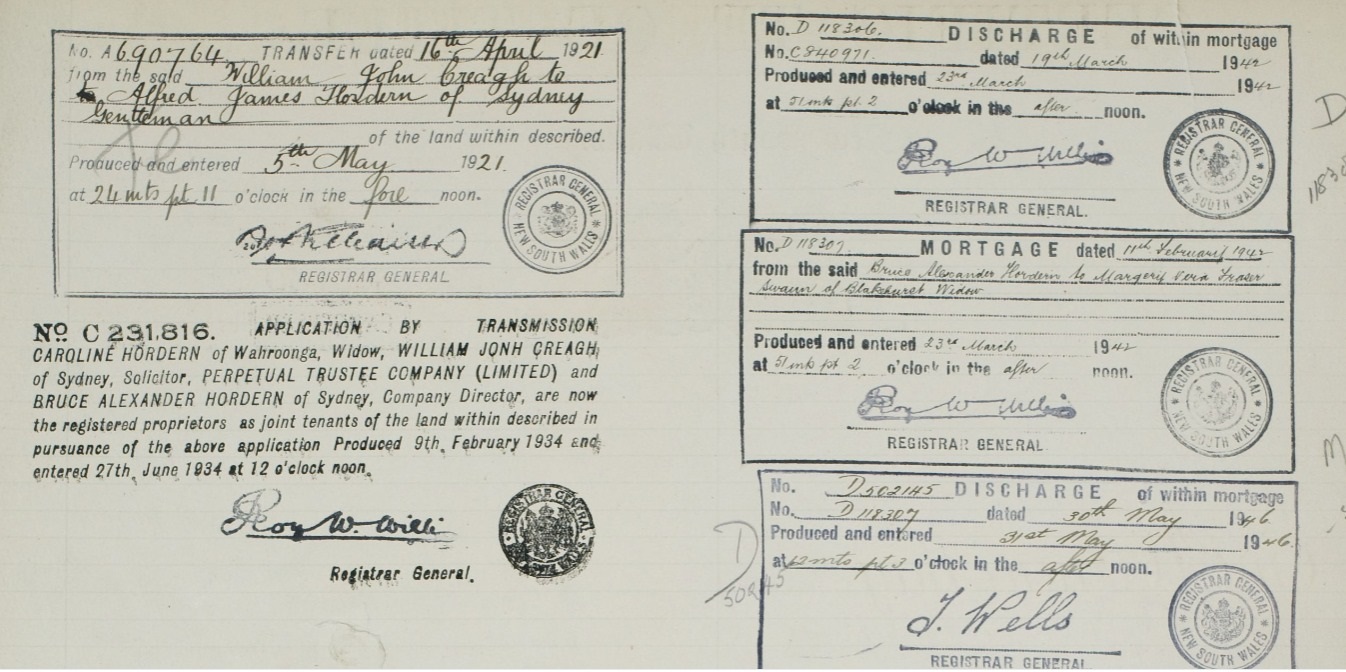 No. A690764 TRANSFER dated 16th April 1921
from the said William John Creagh to
Alfred James Hordern of Sydney
Gentleman
of the land within described.
Produced and entered 5th May 1921.
at 24 mts pt 11 o'clock in the fore noon.
REGISTRAR GENERAL
NEW SOUTH WALES
REGISTRAR GENERAL
No. C 231,816. APPLICATION BY TRANSMISSION
CAROLINE HORDERN of Wahroonga, Widow, WILLIAM JONH CREAGH
of Sydney, Solicitor, PERPETUAL TRUSTEE COMPANY (LIMITED) and
BRUCE ALEXANDER HORDERN of Sydney, Company Director, are now
the registered proprietors as joint tenants of the land within described in
pursuance of the above application Produced 9th, February 1934 and
entered 27th, June 1934 at 12 o'clock noon,
Roy W. Willis
REGISTRAR GENERAL
Registrar General.
No. D 118306. DISCHARGE of within mortgage
No. C840971. dated 19th March 1942
Produced and entered 23rd March 1942
at 51 mts pt. 2 o'clock in the after noon.
Roy W Willis
REGISTRAR GENERAL
NEW SOUTH WALES
REGISTRAR GENERAL.
D
No. D 118307 MORTGAGE dated 11th February 1942
from the said Bruce Alexander Hordern to Margery Vera Fraser
Swann of Blakehurst Widow
Produced and entered 23rd March 1942
at 51 mts pt 2 o'clock in the after noon.
Roy W Willis
REGISTRAR GENERAL
NEW SOUTH WALES
REGISTRAR GENERAL
No. D502145 DISCHARGE of within mortgage
No. D118307 dated 30th May 1946.
Produced and entered 31st May 1946.
at 12 mts pt 3 o'clock in the after noon.
D
J. Wells
REGISTRAR GENERAL
NEW SOUTH WALES
REGISTRAR GENERAL